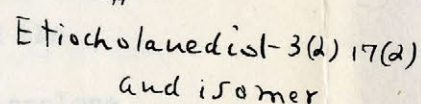 Etiocholanediol-3(α) 17(α)
and isomer